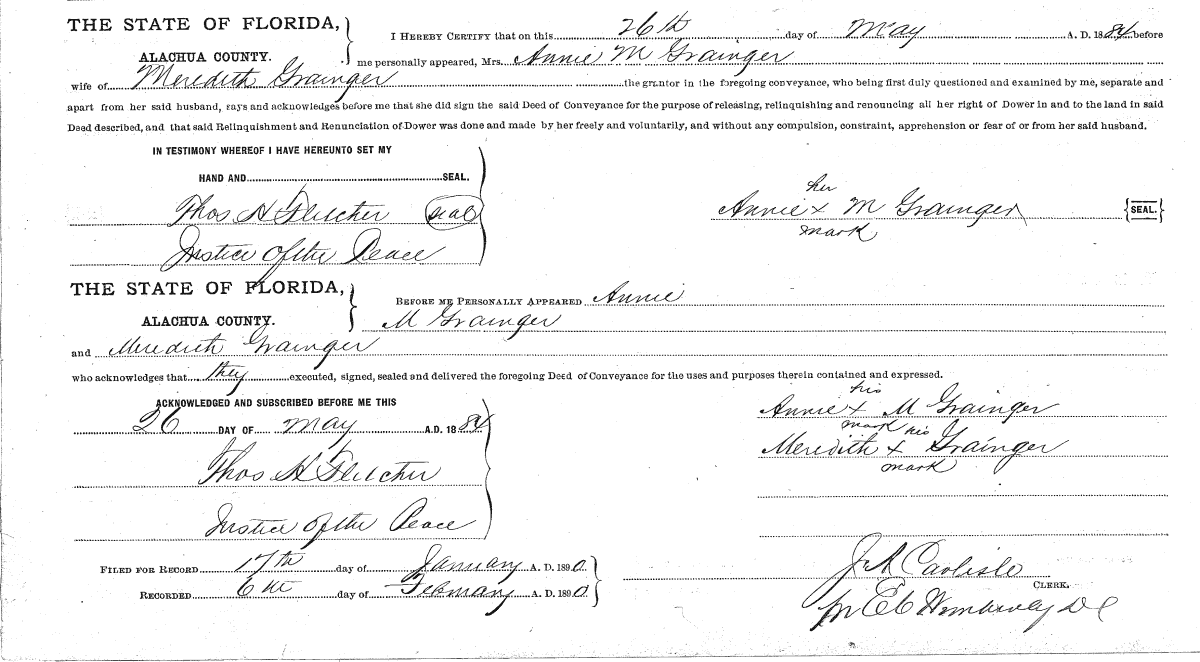 THE STATE OF FLORIDA,
ALACHUA COUNTY.
I HEREBY CERTIFY that on this 26th day of May A. D. 1884 before
me personally appeared, Mrs. Annie M Grainger
wife of Meredith Grainger the grantor in the foregoing conveyance, who being first duly questioned and examined by me, separate and
apart from her said husband, says and acknowledges before me that she did sign the said Deed of Conveyance for the purpose of releasing, relinquishing and renouncing all her right of Dower in and to the land in said
Deed described, and that said Relinquishment and Renunciation of Dower was done and made by her freely and voluntarily, and without any compulsion, constraint, apprehension or fear of or from her said husband.
IN TESTIMONY WHEREOF I HAVE HEREUNTO SET MY
HAND AND SEAL.
Thos H Fletcher (seal)
Justice of the Peace
her
Annie x M Grainger {SEAL.}
mark
THE STATE OF FLORIDA,
ALACHUA COUNTY.
BEFORE ME PERSONALLY APPEARED Annie
M Grainger
and Meredith Grainger
who acknowledges that they executed, signed, sealed and delivered the foregoing Deed of Conveyance for the uses and purposes therein contained and expressed.
ACKNOWLEDGED AND SUBSCRIBED BEFORE ME THIS
26 DAY OF May A.D. 1884
Thos H Fletcher
Justice of the Peace
his
Annie x M Grainger
mark his
Meredith x Grainger
mark
FILED FOR RECORD 17th day of January A. D. 1890.
RECORDED 6th day of February A. D. 1890
J A Carlisle
CLERK.
pr E C Wimberly D C